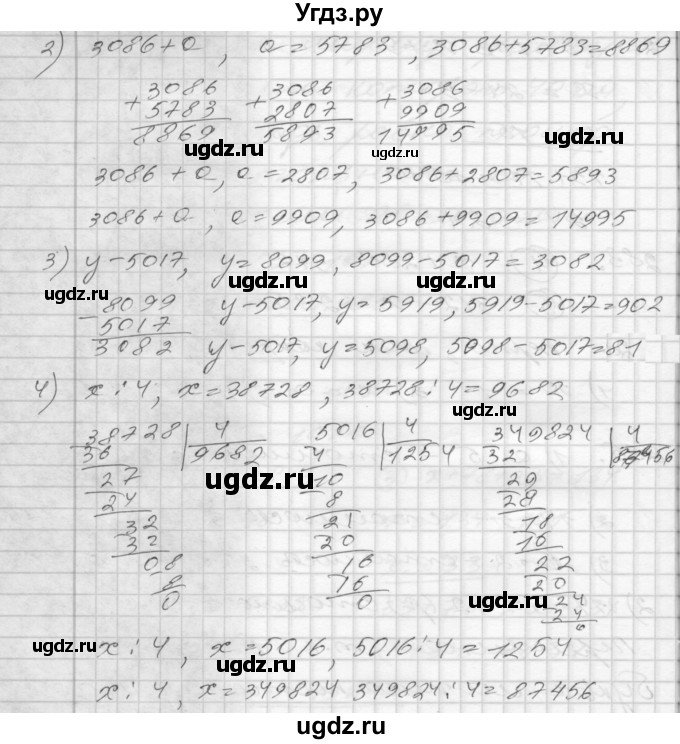 Угдз.ру
2) 3086+a, a=5783, 3086+5783=8869
+3086 +3086 +3086
5783 2807 9909
8869 5893 14995
ugdz.ru
ugdz.ru
ugdz.ru
3086+a, a=2807, 3086+2807=5893
3086+a, a=9909, 3086+9909=14995
3) y-5017, y=8099, 8099-5017=3082
ugdz.ru
ugdz.ru
ugdz.ru
-8099 y-5017, y=5919, 5919-5017=902
5017
3082 y-5017, y=5098, 5098-5017=81
4) x:4, x=38728, 38728:4=9682
ugdz.ru
38728 4 5016 4 349824 4
36 9682 4 1254 32 87456
ugdz.ru
27 10 29
24 8 28
32 21 18
32 20 16
08 16 22
8 16 20
0 0 24
24
0
ugdz.ru
x:4, x=5016, 5016:4=1254
ugdz.ru
ugdz.ru
x:4, x=349824 349824:4=87456
ugdz.ru
ugdz.ru